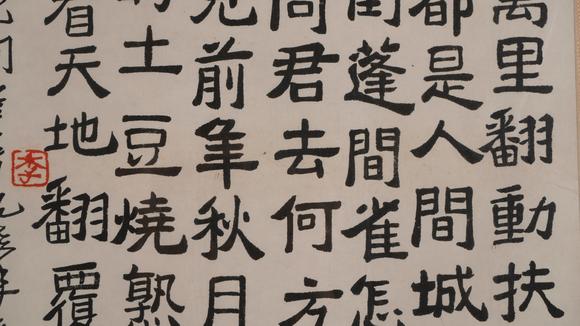 萬里翻動扶
都是人間城
蓬間雀怎
問君去何方
見前年秋月
的土豆燒熟
看天地翻覆